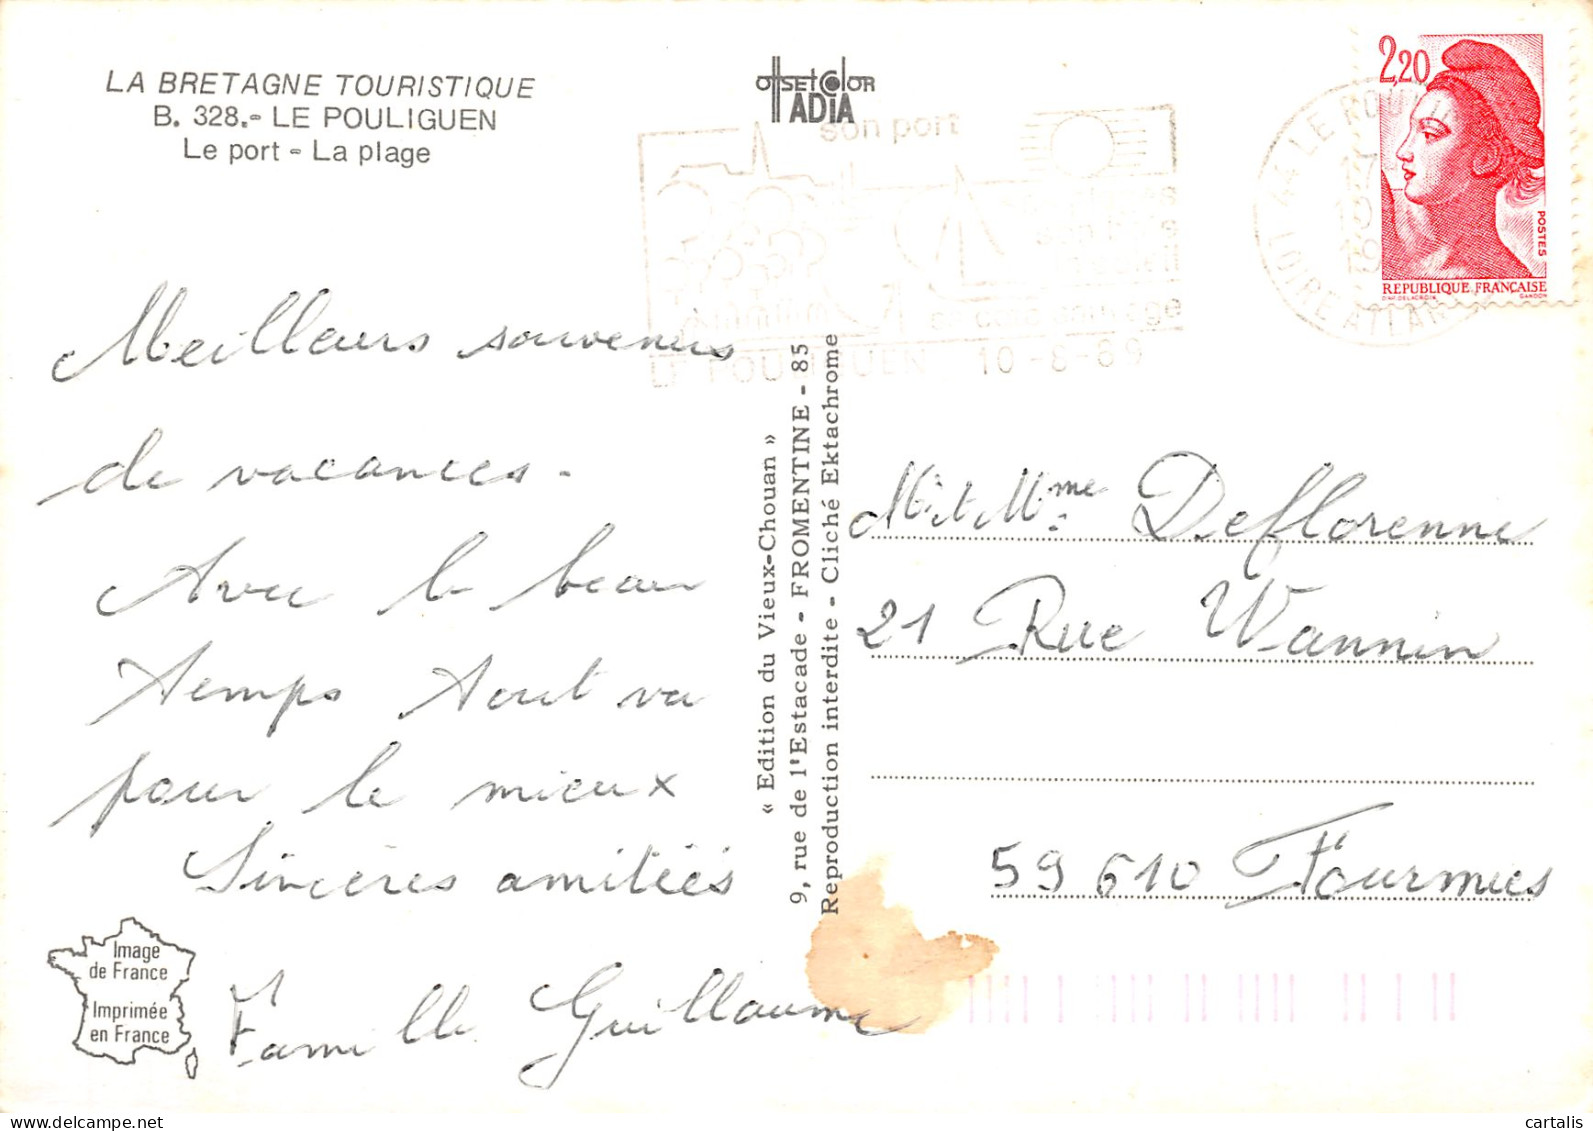 LA BRETAGNE TOURISTIQUE
B. 328.- LE POULIGUEN
Le port - La plage
OffSET COLOR
ADIA
son port
sa côte sauvage
LE POULIGUEN 10-8-89
44 LE POULIGUEN
LOIRE ATLANTIQUE
2,20
POSTES
REPUBLIQUE FRANÇAISE
D'AP. DELACROIX GANDON
Meilleurs souvenirs
de vacances.
Avec le beau
temps tout va
pour le mieux
Sincères amitiés
Famille Guillaume
« Edition du Vieux-Chouan »
9, rue de l'Estacade - FROMENTINE - 85
Reproduction interdite - Cliché Ektachrome
M. et Mme Deflorenne
21 Rue Wannin
59610 Fourmies
Image
de France
Imprimée
en France
Delcampe.net
cartalis